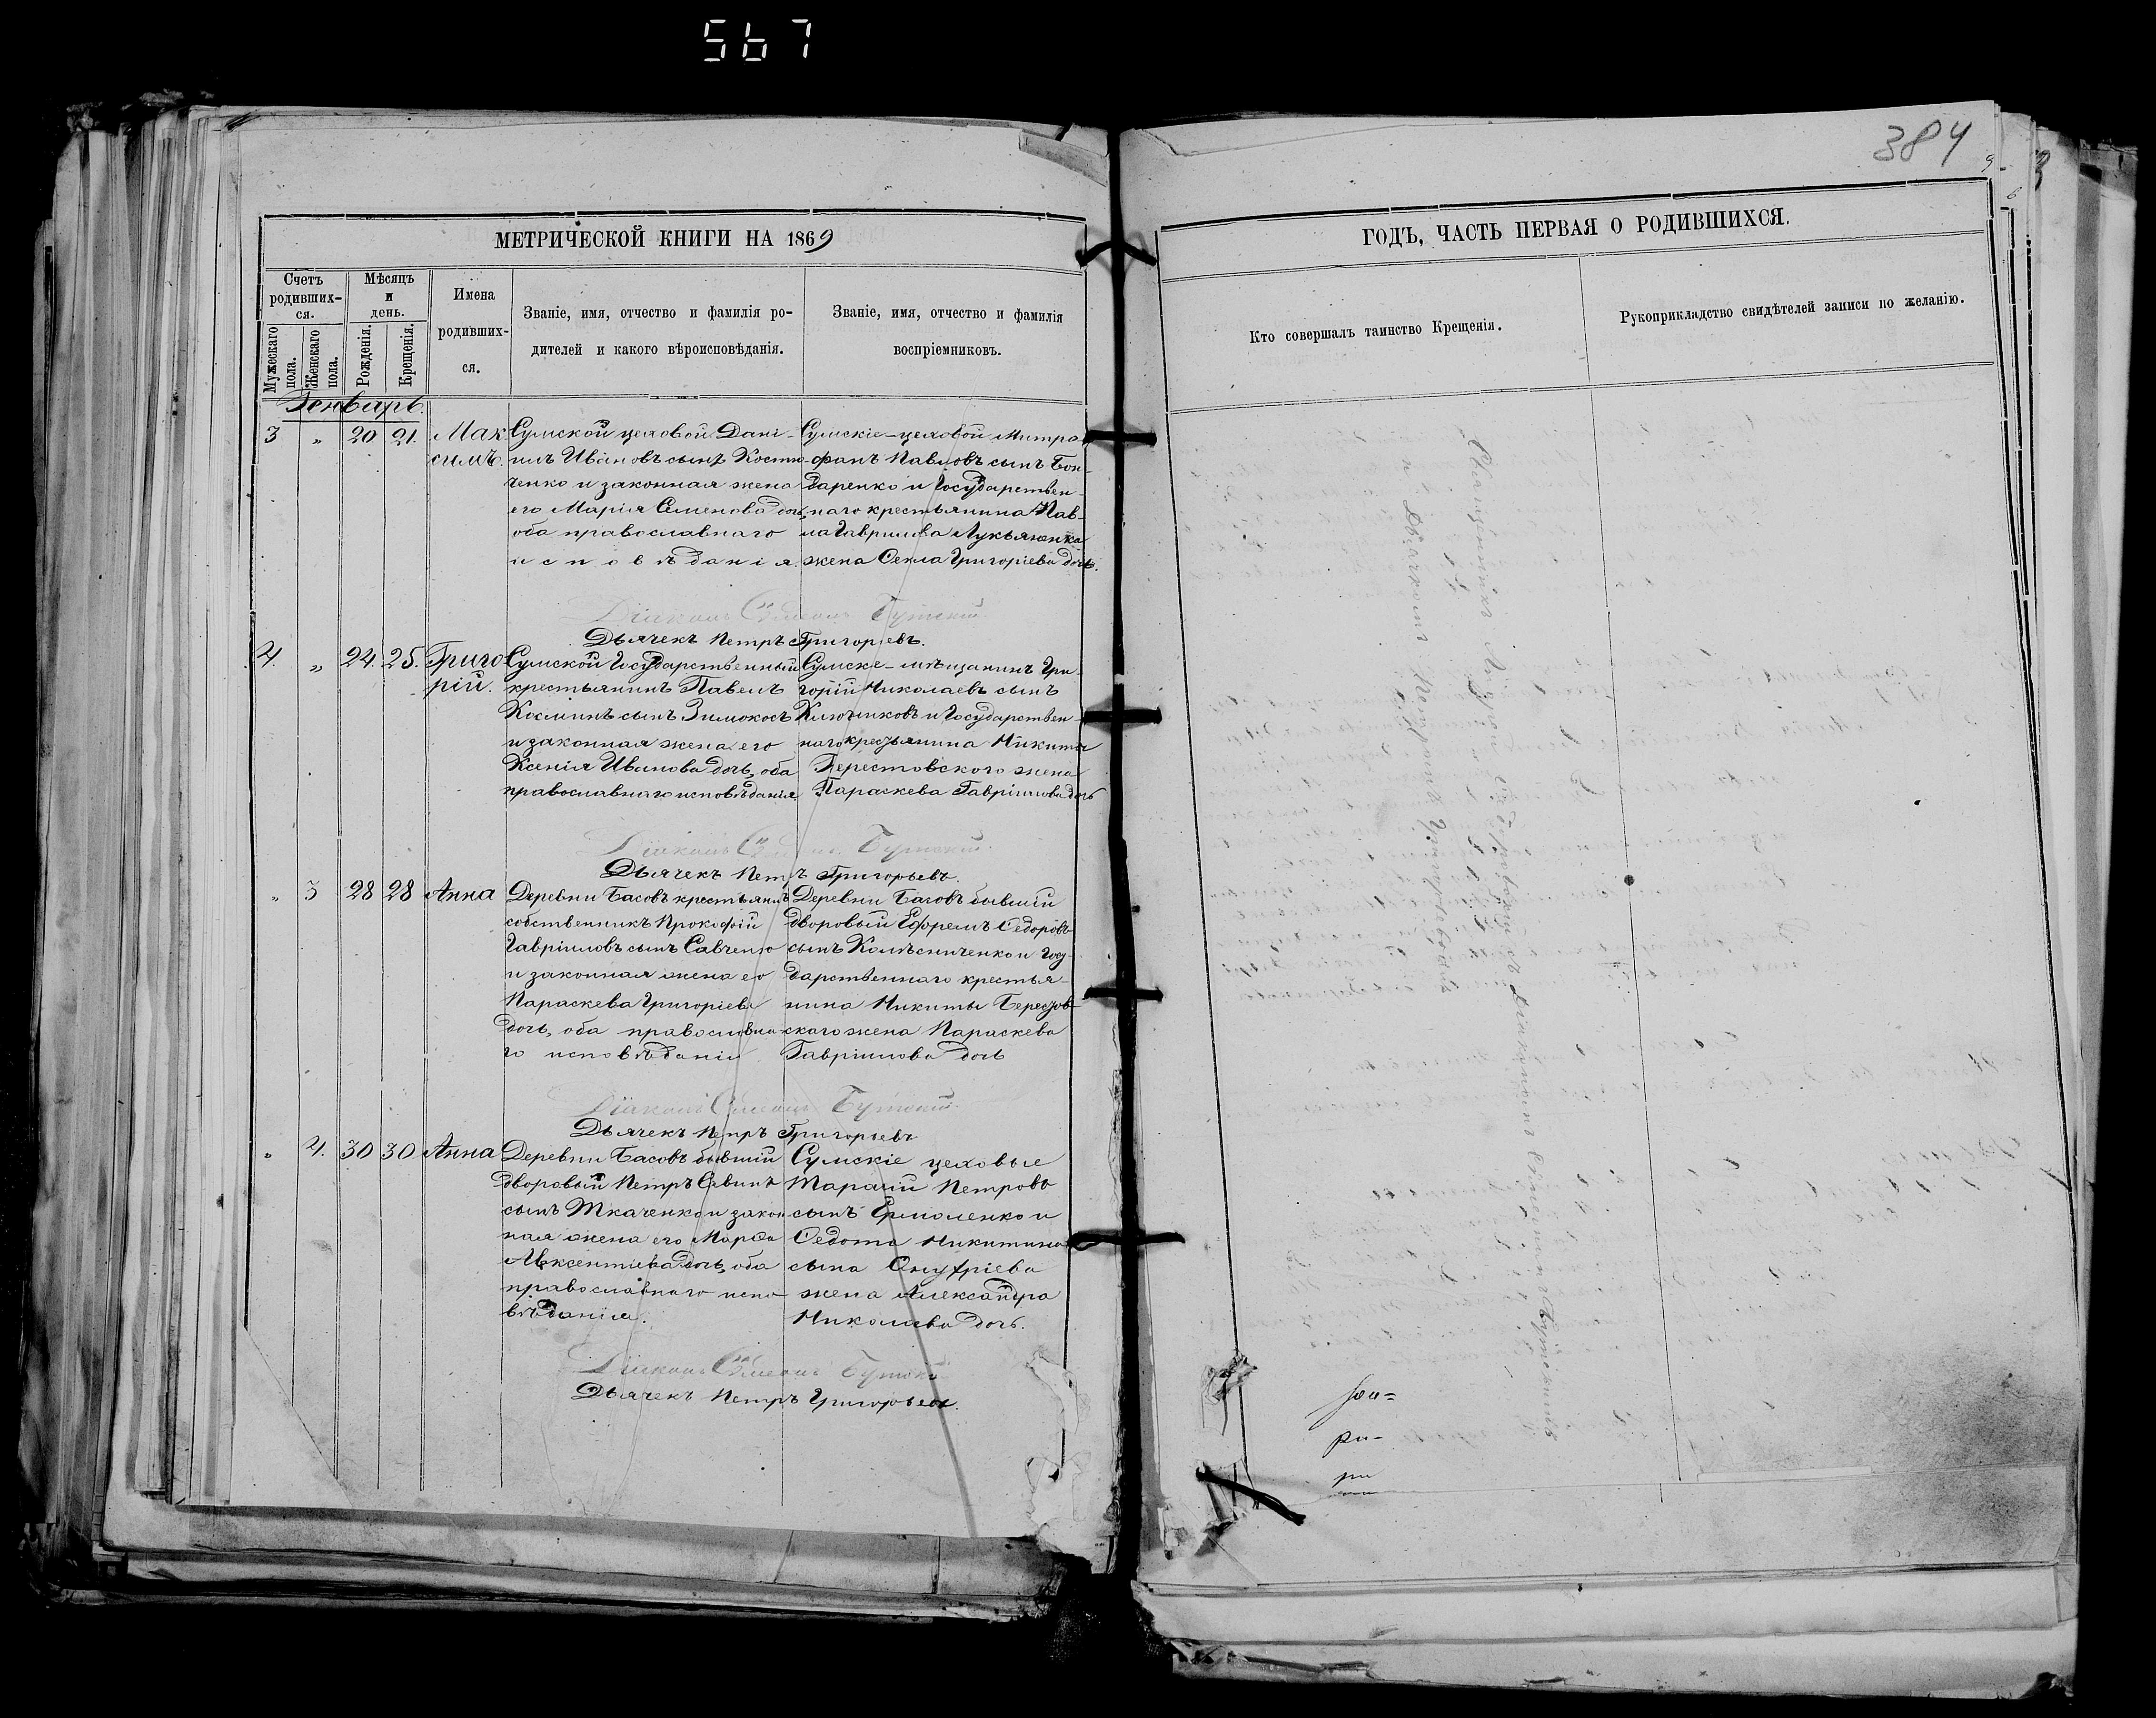 567
384
МЕТРИЧЕСКОЙ КНИГИ НА 1869
Счетъ родивших-ся.
Мужескаго пола.
Женскаго пола.
Мѣсяцъ и день.
Рожденія.
Крещенія.
Имена родивших-ся.
Званіе, имя, отчество и фамилія ро-
дителей и какого вѣроисповѣданія.
Званіе, имя, отчество и фамилія
воспріемниковъ.
Генварь.
3 " 20 21. Мак
симъ.
Сумской цеховой Дані-
илъ Ивановъ сынъ Костю-
ченко и законная жена
его Марія Семенова дочь,
оба православнаго
исповѣданія.
Сумскіе – цеховой Митро-
фанъ Павловъ сынъ Бон-
даренко и Государствен-
наго крестьянина Пав-
ла Гаврилова Лукьяненка
жена Секла Григоріева дочь.
Діаконъ Симеонъ
Дьячекъ Петръ Григорьевъ.
4. " 24. 25. Григо-
рій.
Сумской Государственный
крестьянинъ Павелъ
Косминъ сынъ Зимокосъ
и законная жена его
Ксенія Иванова дочь, оба
православнаго исповѣданія.
Сумске – мѣщанинъ Гри-
горій Николаевъ сынъ
Ключниковъ и Государствен-
наго крестьянина Никиты
Берестовского жена
Параскева Гавріилова дочь
Діаконъ
Дьячекъ Петръ Григорьевъ.
" 3 28 28 Анна
Деревни Басовъ крестьянинъ
собственникъ Прокофій
Гавріиловъ сынъ Савченко
и законная жена его
Параскева Григоріева
дочь, оба православна-
го исповѣданія.
Деревни Басовъ бывшій
дворовый Ефремъ Ѳедоровъ
сынъ Колѣсниченко и Госу-
дарственнаго крестья-
нина Никиты Берестов-
скаго жена Параскева
Гавріилова дочь
Діаконъ Симеонъ
Дьячекъ Петръ Григорьевъ
" 4. 30 30 Анна
Деревни Басовъ бывшій
дворовый Петръ Савинъ
сынъ Ткаченко и закон-
ная жена его Марфа
Авксентіева дочь, оба
православнаго испо-
вѣданія.
Сумскіе цеховые
Тарасій Петровъ
сынъ Ермоленко и
Ѳедота Никитина
сына Онуфріева
жена Александра
Николаева дочь.
Діаконъ Симеонъ
Дьячекъ Петръ Григорьевъ.
ГОДЪ, ЧАСТЬ ПЕРВАЯ О РОДИВШИХСЯ.
Кто совершалъ таинство Крещенія.
Рукоприкладство свидѣтелей записи по желанію.
ри-